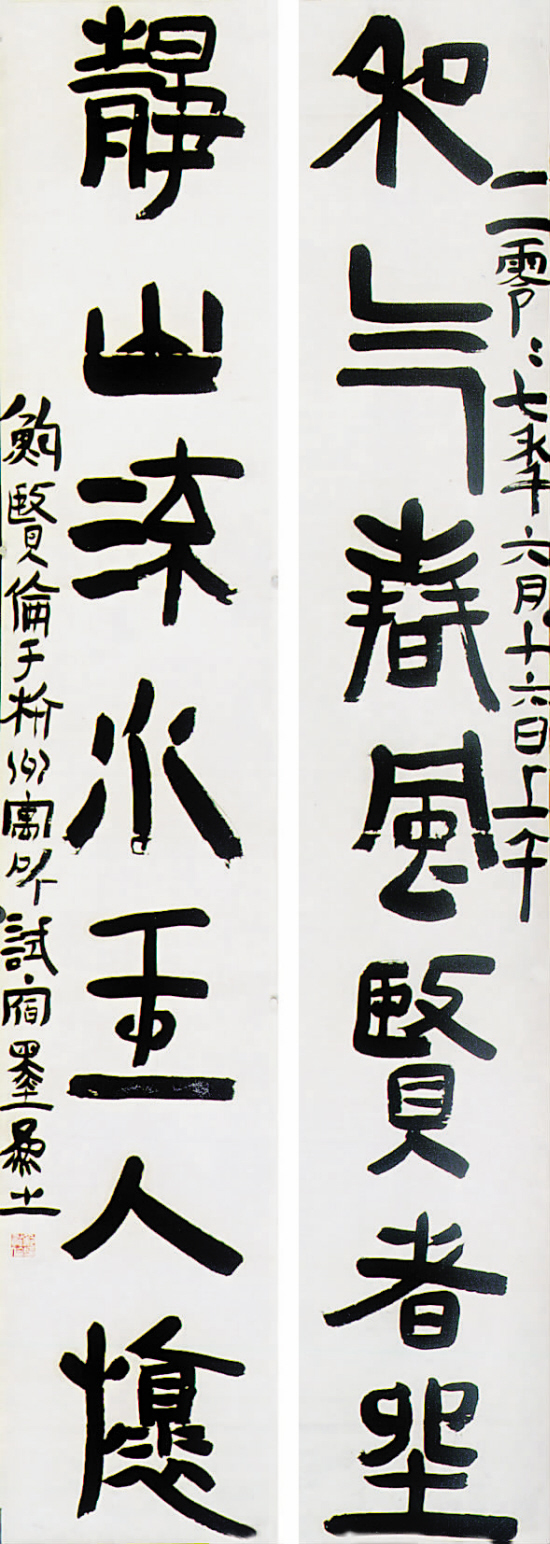 二零〻七年六月十六日上午
和气春風賢者坐
靜山流水人懷
鮑賢倫于杭州寓所試宿墨